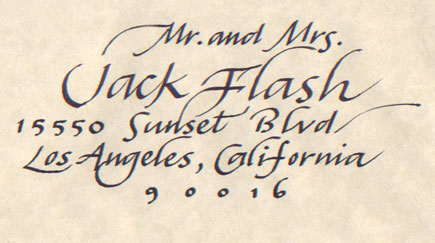 Mr. and Mrs.
Jack Flash
15550 Sunset Blvd
Los Angeles, California
90016